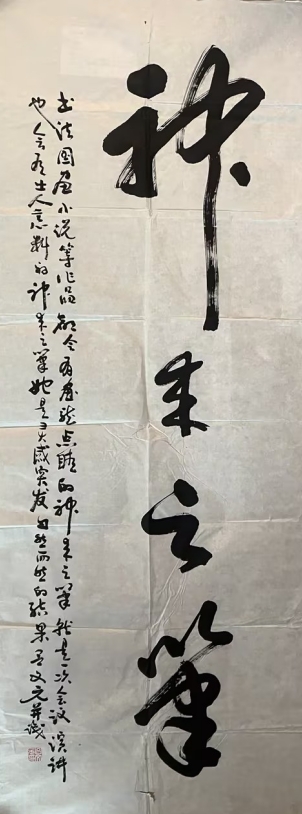 神来之笔
书法国画小说等作品都会有画龙点睛的神来之笔就是一次会议演讲
也会有出人意料的神来之笔她是灵感突发自然而然的结果 文元并识